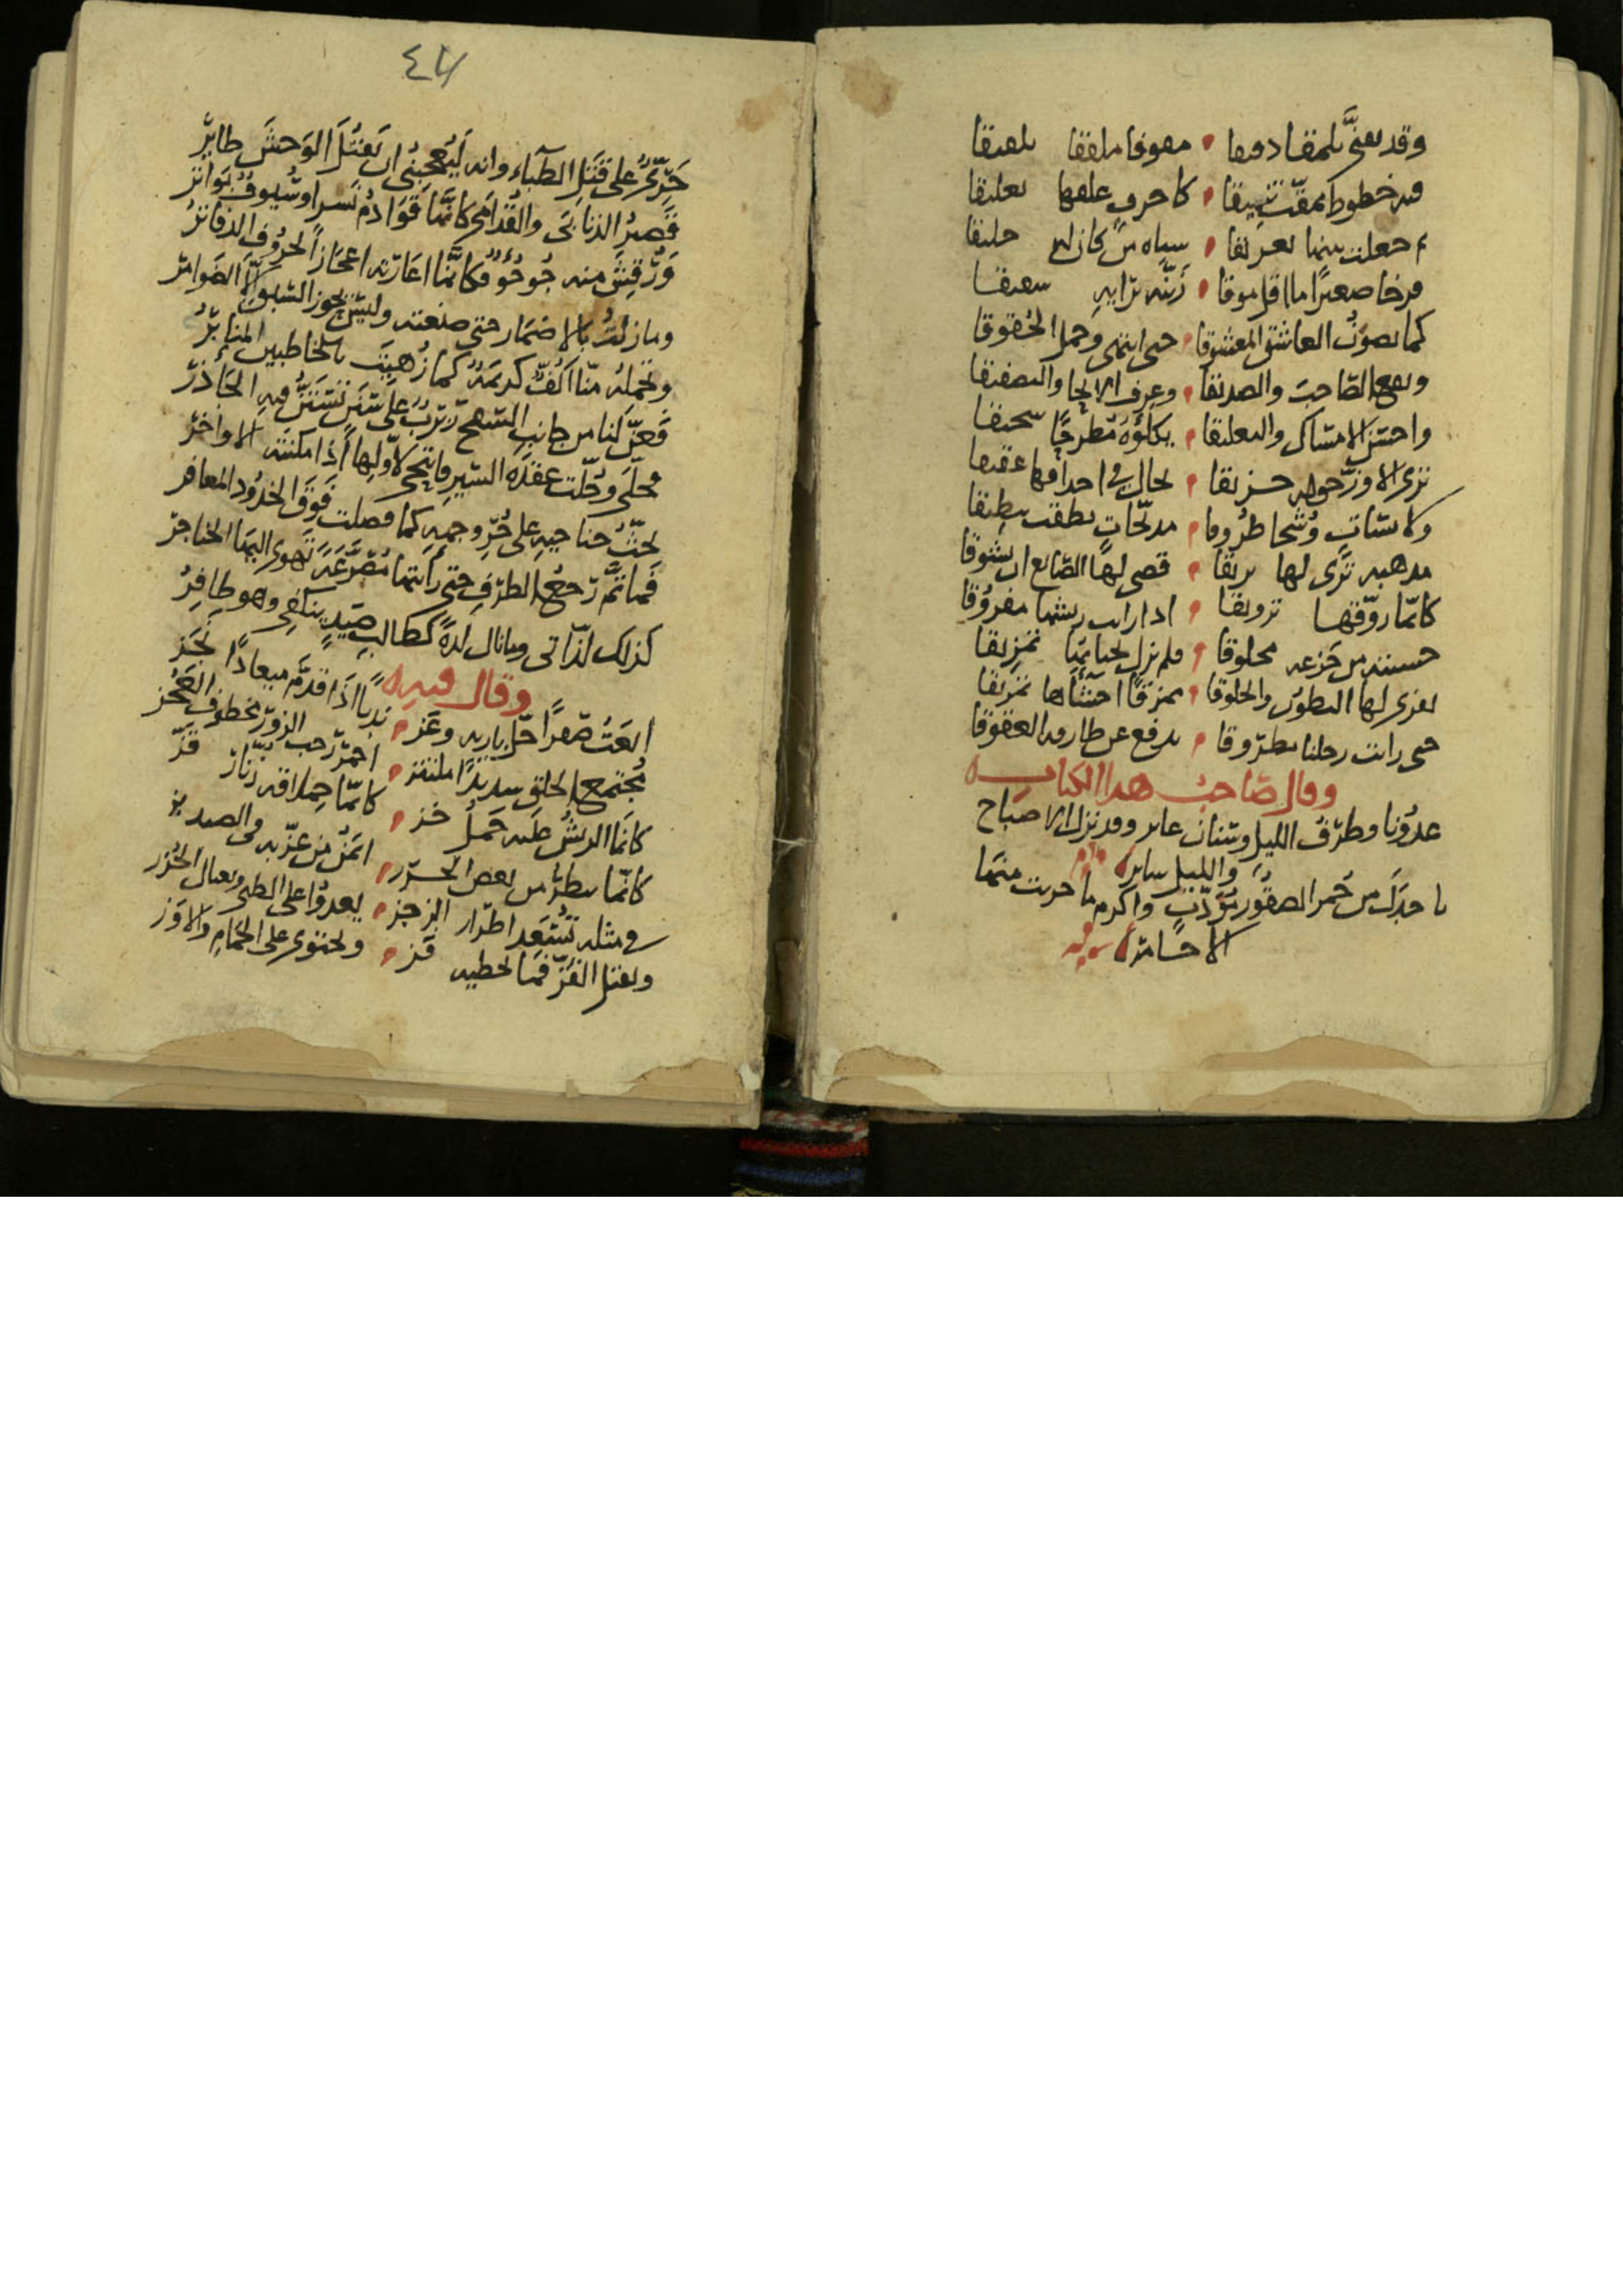 وقد يعنّى بلمقا دميقا معوفا ملفقا تلفيقا
فيه خطوط نمقت تنميقا كأحرف علقها تعليقا
ثم جعلت بينها تفريقا سياه من كان له حليقا
فرخا صغيرا ما اقل موقا رَبّه ترابيه شفيقا
كما يصون العاشق المعشوقا حتى انتهى وحمل الحقوقا
ونفع الصاحب والصديقا وعرف الالحا والتصفيقا
واحسن الامساك والتعليقا يكلؤه مطرحا سحيقا
ترى الاوز حوله حزيقا تخال في احداقها عقيقا
وكاسات وشحا طروقا مدبحات نطقت تنطيقا
مذهبه ترى لها بريقا قضى لها الصانع ان يشوقا
كانما روقها ترويقا اذا رايت ريشها مفروقا
حسبته من جزعه مخلوقا ولم نزل لحياتها تمزيقا
يفرى لها البطون والحلوقا ممزقا احشاها تمزيقا
حتى رايت رحلنا مطروقا يدفع عن طارقه العقوقا
وقال صاحب هذا الكتاب
غدونا وطرف الليل وسنان غابر وقد نزل الاصباح
والليل ساير
باجدل من حمر الصقور مؤدب واكرم ما جربت منها
الاحامر
٤٧
جرئ على قتل الظباء وانه ليعجبنى ان يقتل الوحش طاير
قصير الذنابى والقدامى كانها قوادم نسر او سيوف بواتر
ورقش منه جؤجؤ فكانما اعارته اعجاز الحروف الدفاتر
وما زلت بالاضمار حتى صنعته وليس يحوز السبق الا الضوامر
وتحمله منا اكف كريمة كما زهيت بالخاطبين المنابر
فعن لنا من جانب السفح ربرب على سنن تستن فيه الجآذر
فجلى وحلت عقدة السير فانتحى لاولها اذا امكنته الاواخر
يحث جناحيه على حر وجهه كما فصلت فوق الخدود المعافر
فما تم رجع الطرف حتى رايتها مصرعة تهوى اليها الخناجر
كذلك لذاتى وما نال لذة كطالب صيد ينكفى وهو ظافر
وقال فيه
انعت صقرا جل باريه وعز ندبا اذا قدم ميعادا نجز
مجتمع الخلق شديدا ملتئز احمر رحب الزور مخطوف العجز
كانما الريش عليه حمل خز كانما حملاقه زنار قز
كانما ينظر من بعض الخرز ايمن من عز به فى الصيد بز
في مثله تسعد اطراد الرجز يعدوا على الظبى ويغتال الخزز
ويقتل القز فما تخطيه قز ويحتوى على الحمام والاوز